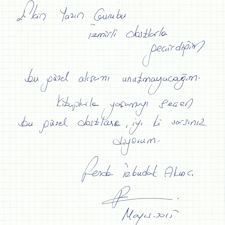 Ekin Yazın Grubu
İzmirli dostlarla
geçirdiğim
bu güzel akşamı unutmayacağım.
Kitaplarla yaşamayı seven
bu güzel dostlara, iyi ki varsınız
diyorum.
Mayıs 2015